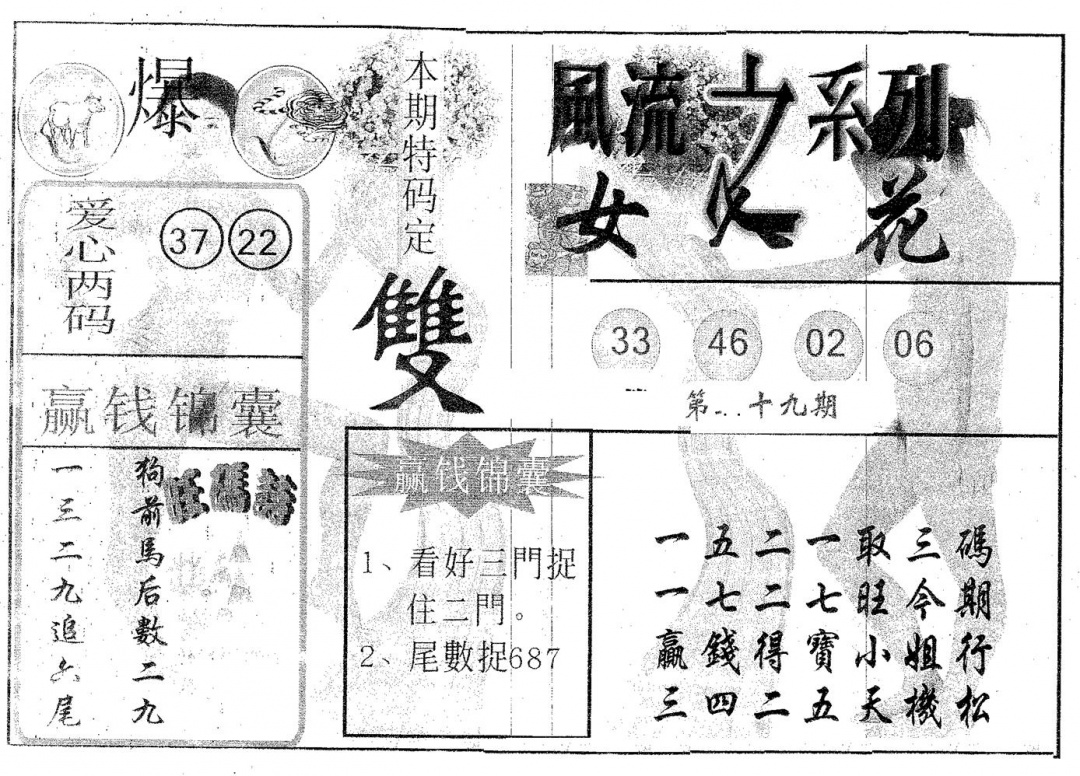 爆
本期特码定
雙
風流之系列
女人花
爱心两码
37 22
33 46 02 06
第...十九期
赢钱锦囊
狗前馬后數二九
一三二九追六尾
赢钱锦囊
1、看好三門捉
住二門。
2、尾數捉687
一五二一取三碼
一七二七旺今期
贏錢得寶小姐行
三四二五天機松